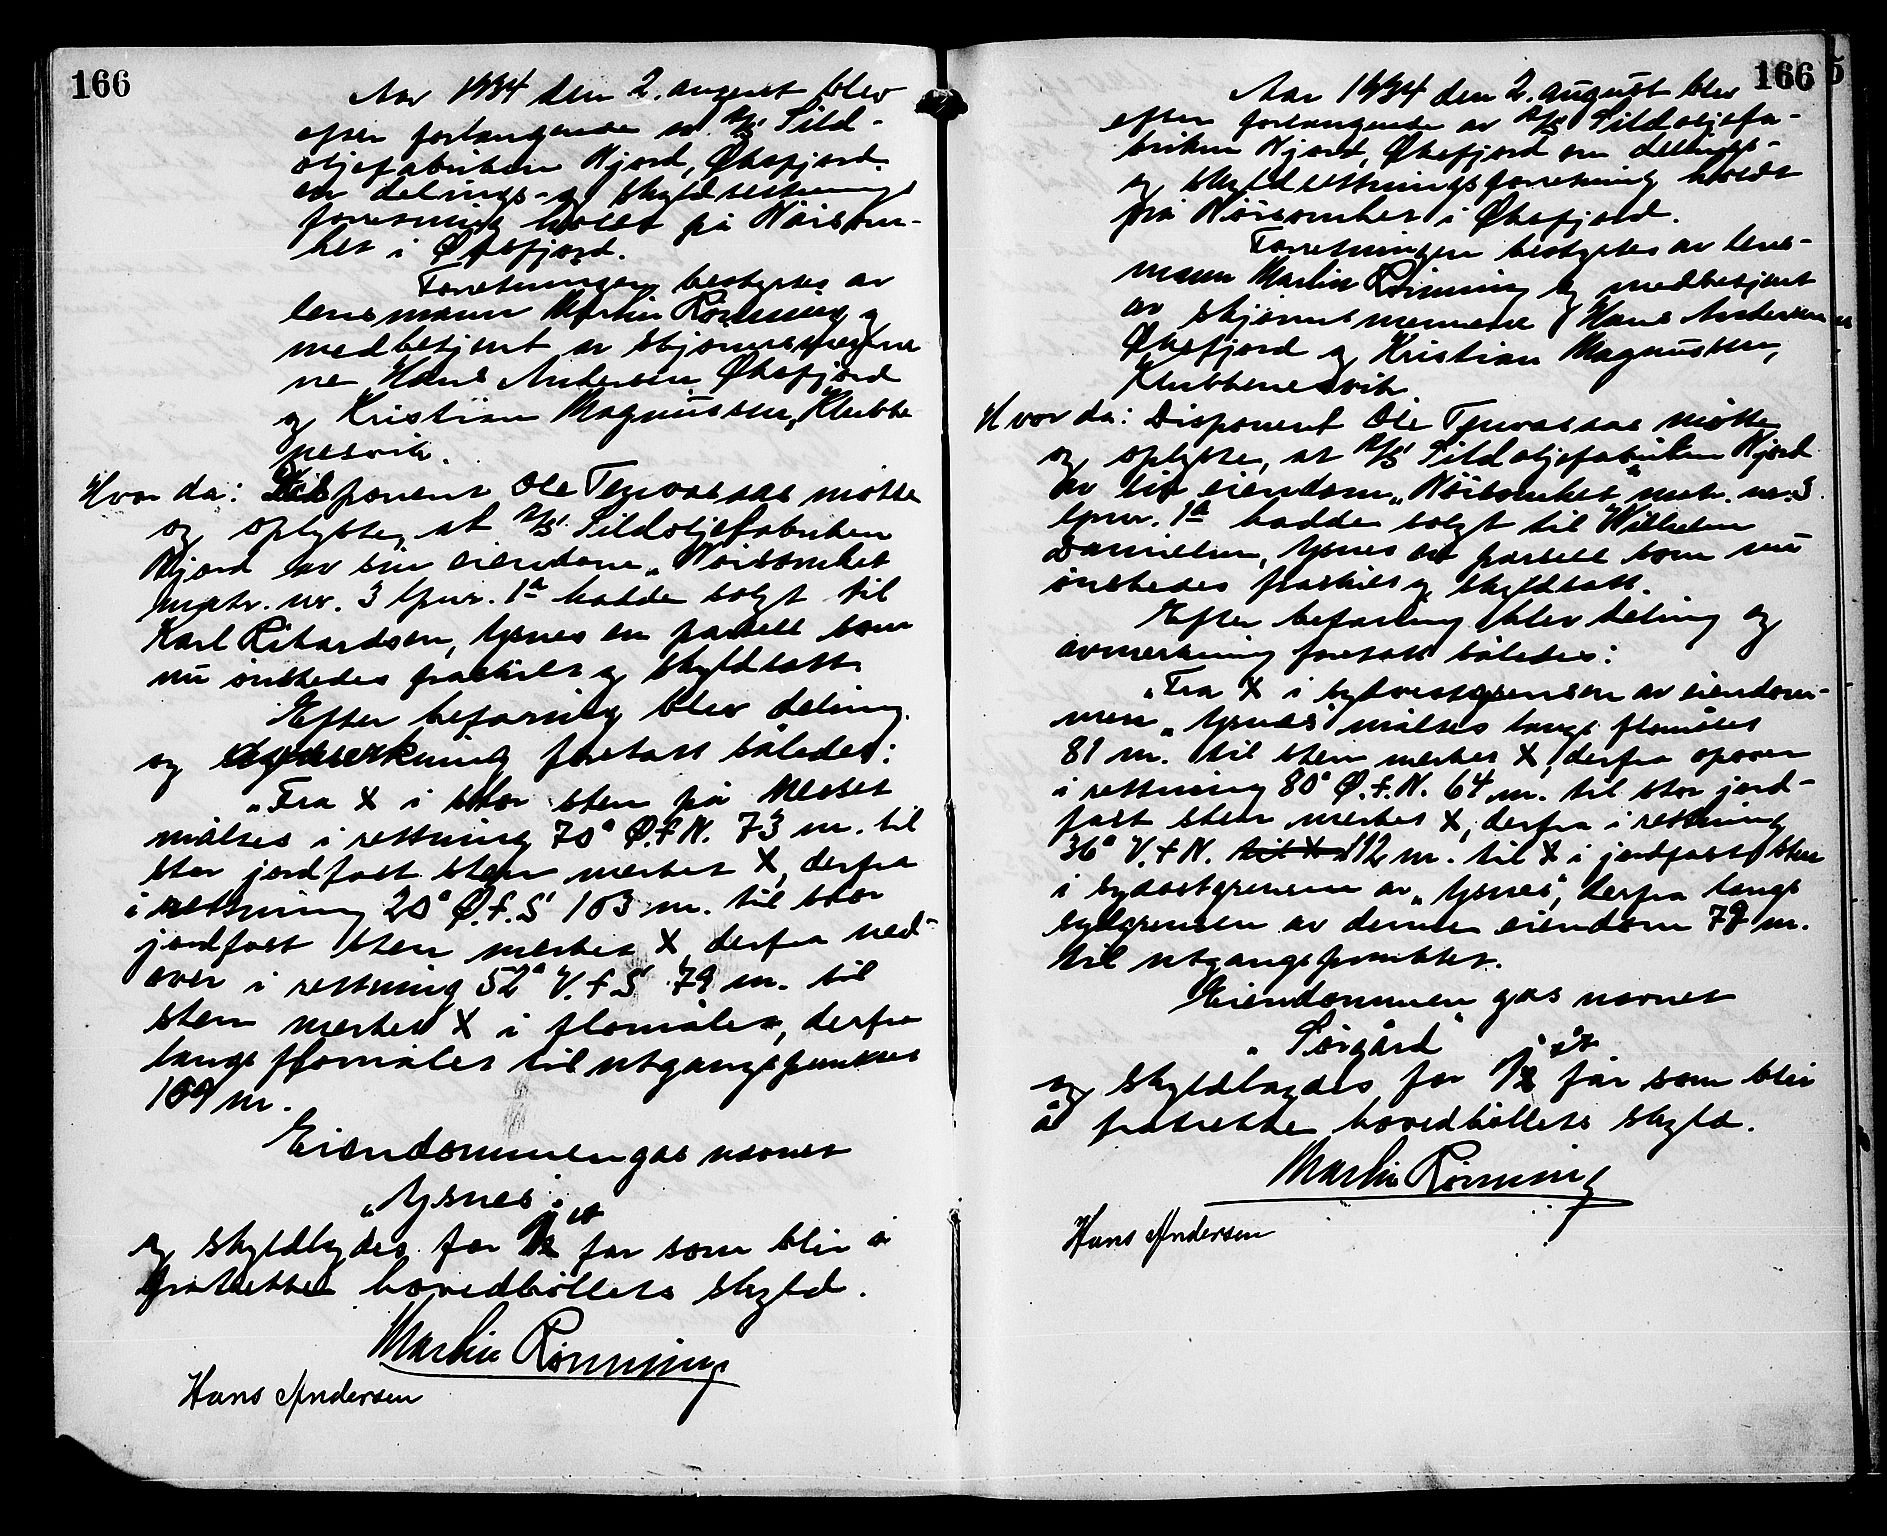 166
Aar 1934 den 2. august blev
efter forlangende av A/S Sild-
oljefabriken Njord, Øksfjord
en delings- og skyldsetnings
forretning holdt på Nöisom-
het i Øksfjord.
Forretningen bestyrtes av
lensmann Martin Rönning og
medbetjent av skjønsmenne
ne Hans Andersen Øksfjord
og Kristian Magnussen, Klubbe
nesvik.
Hvor da: Disponent Ole Tennaasas møtte
og oplyste, at A/S Sildoljefabriken
Njord av sin eiendom „Nöisomhet
matr. nr. 3 lpnr. 1a hadde solgt til
Karl Rikardsen, Ysnes en parsell som
nu önskedes fraskilt og skyldsatt.
Efter befaring blev deling
og avmerkning foretatt således:
„Fra X i stor sten på Neset
måltes i rettning 70° Ø.f.N. 73 m. til
stor jordfast sten merket X, derfra
i rettning 20° Ø.f.S 103 m. til stor
jordfast sten merket X derfra ned-
over i rettning 52° V.f.S 79 m. til
sten merket X i flomålet, derfra
langs flomålet til utgangspunktet
109 m.
Eiendommen gas navnet
„Ysnes"
og skyldlagdes for 1 øre
som blir å
fratrekke hovedböllets skyld.
Martin Rönning
Hans Andersen
166
5
Aar 1934 den 2. august blev
efter forlangende av A/S Sildoljefa-
briken Njord, Øksfjord en delings-
og skyldsettningsforretning holdt
på Nöisomhet i Øksfjord.
Forretningen bestyrtes av lens-
mann Martin Rönning og medbetjent
av skjønnsmennene Hans Andersen
Øksfjord og Kristian Magnussen,
Klubbenesvik
Hvor da: Disponent Ole Tennaasas møtte
og oplyste, at A/S Sildoljefabriken Njord
av sin eiendom „Nöisomhet" matr. nr. 3
lpnr. 1a hadde solgt til Wilhelm
Danielsen, Ysnes en parsell som nu
önskedes fraskilt og skyldsatt.
Efter befaring blev deling og
avmerkning foretatt således:
„Fra X i sydvestgrensen av eiendom-
men „Ysnes" måltes langs flomålet
81 m. til sten merket X, derfra opover
i rettning 80° Ø.f.N. 64 m. til stor jord-
fast sten merket X, derfra i rettning
36° V.f.N. til X 112 m. til X i jordfast sten
i sydostgrensen av „Ysnes", derfra langs
sydgrensen av denne eiendom 79 m.
til utgangspunktet.
Eiendommen gas navnet
„Sörgård"
og skyldlagdes for 1 øre
som blir
å fratrekke hovedböllets skyld.
Martin Rönning
Hans Andersen